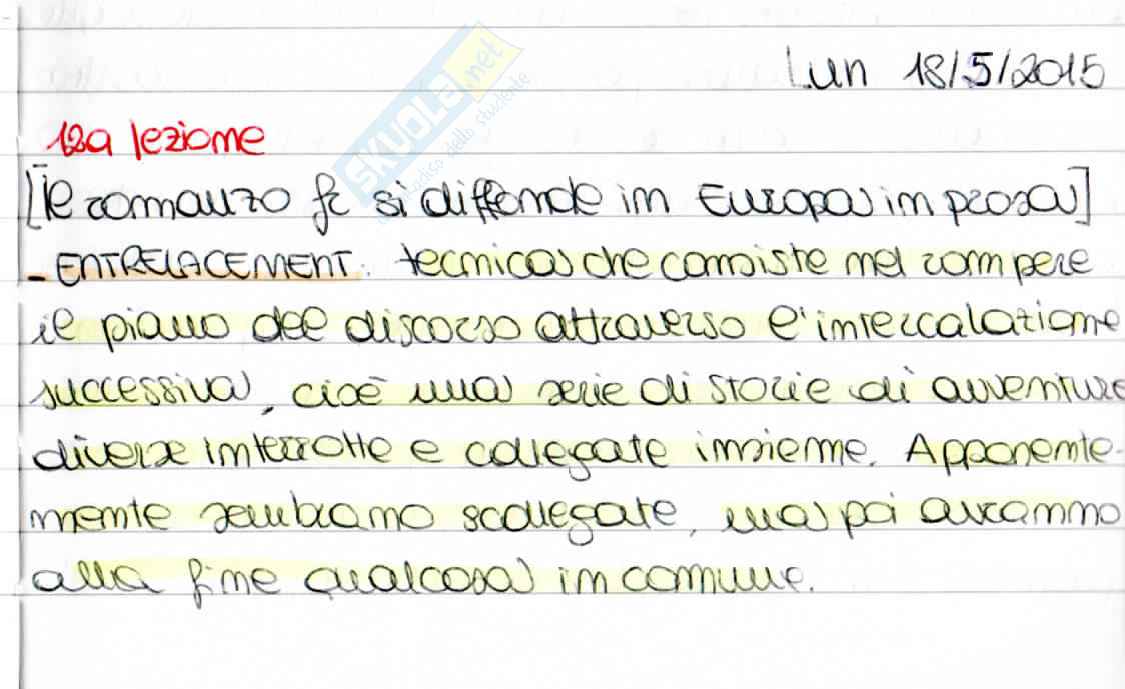 Lun 18/5/2015
12a lezione
[Il romanzo fr si diffonde in Europa in prosa]
- ENTRELACEMENT: tecnica che consiste nel rompere
il piano del discorso attraverso l'intercalazione
successiva, cioè una serie di storie di avventure
diverse interrotte e collegate insieme. Apparente-
mente sembrano scollegate, ma poi avranno
alla fine qualcosa in comune.
SKUOLA.net
paradiso dello studente